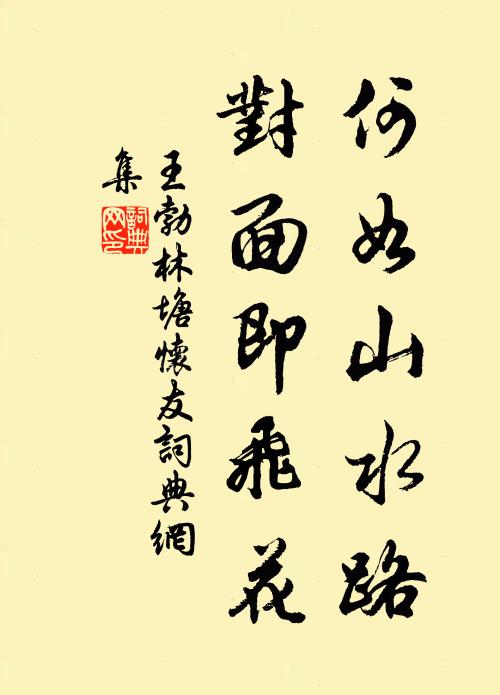 何如山水路
對面即飛花
王勃林塘懷友詞典網
集
詞典
网印